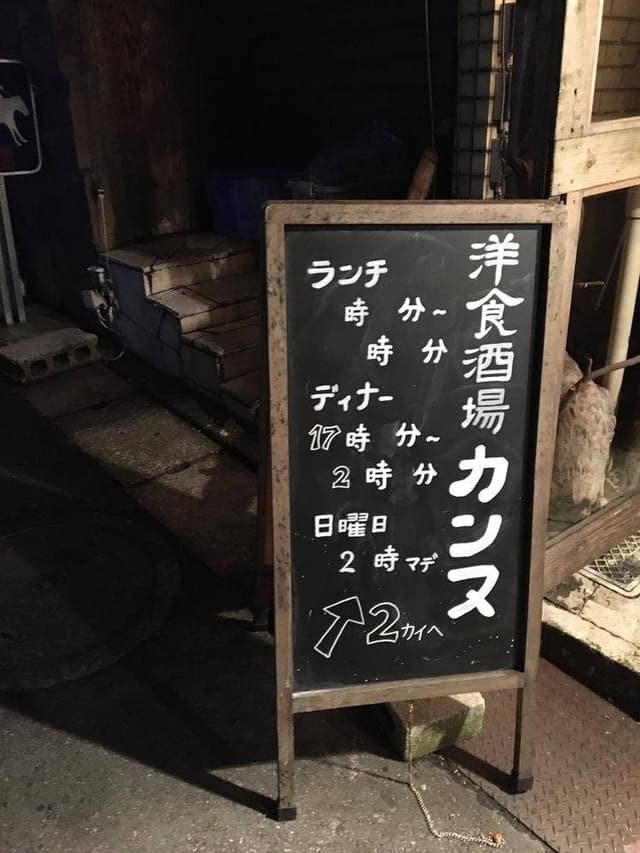 洋食酒場 カンヌ
ランチ
時 分~
時 分
ディナー
17時 分~
2時 分
日曜日
2時マデ
2カイヘ